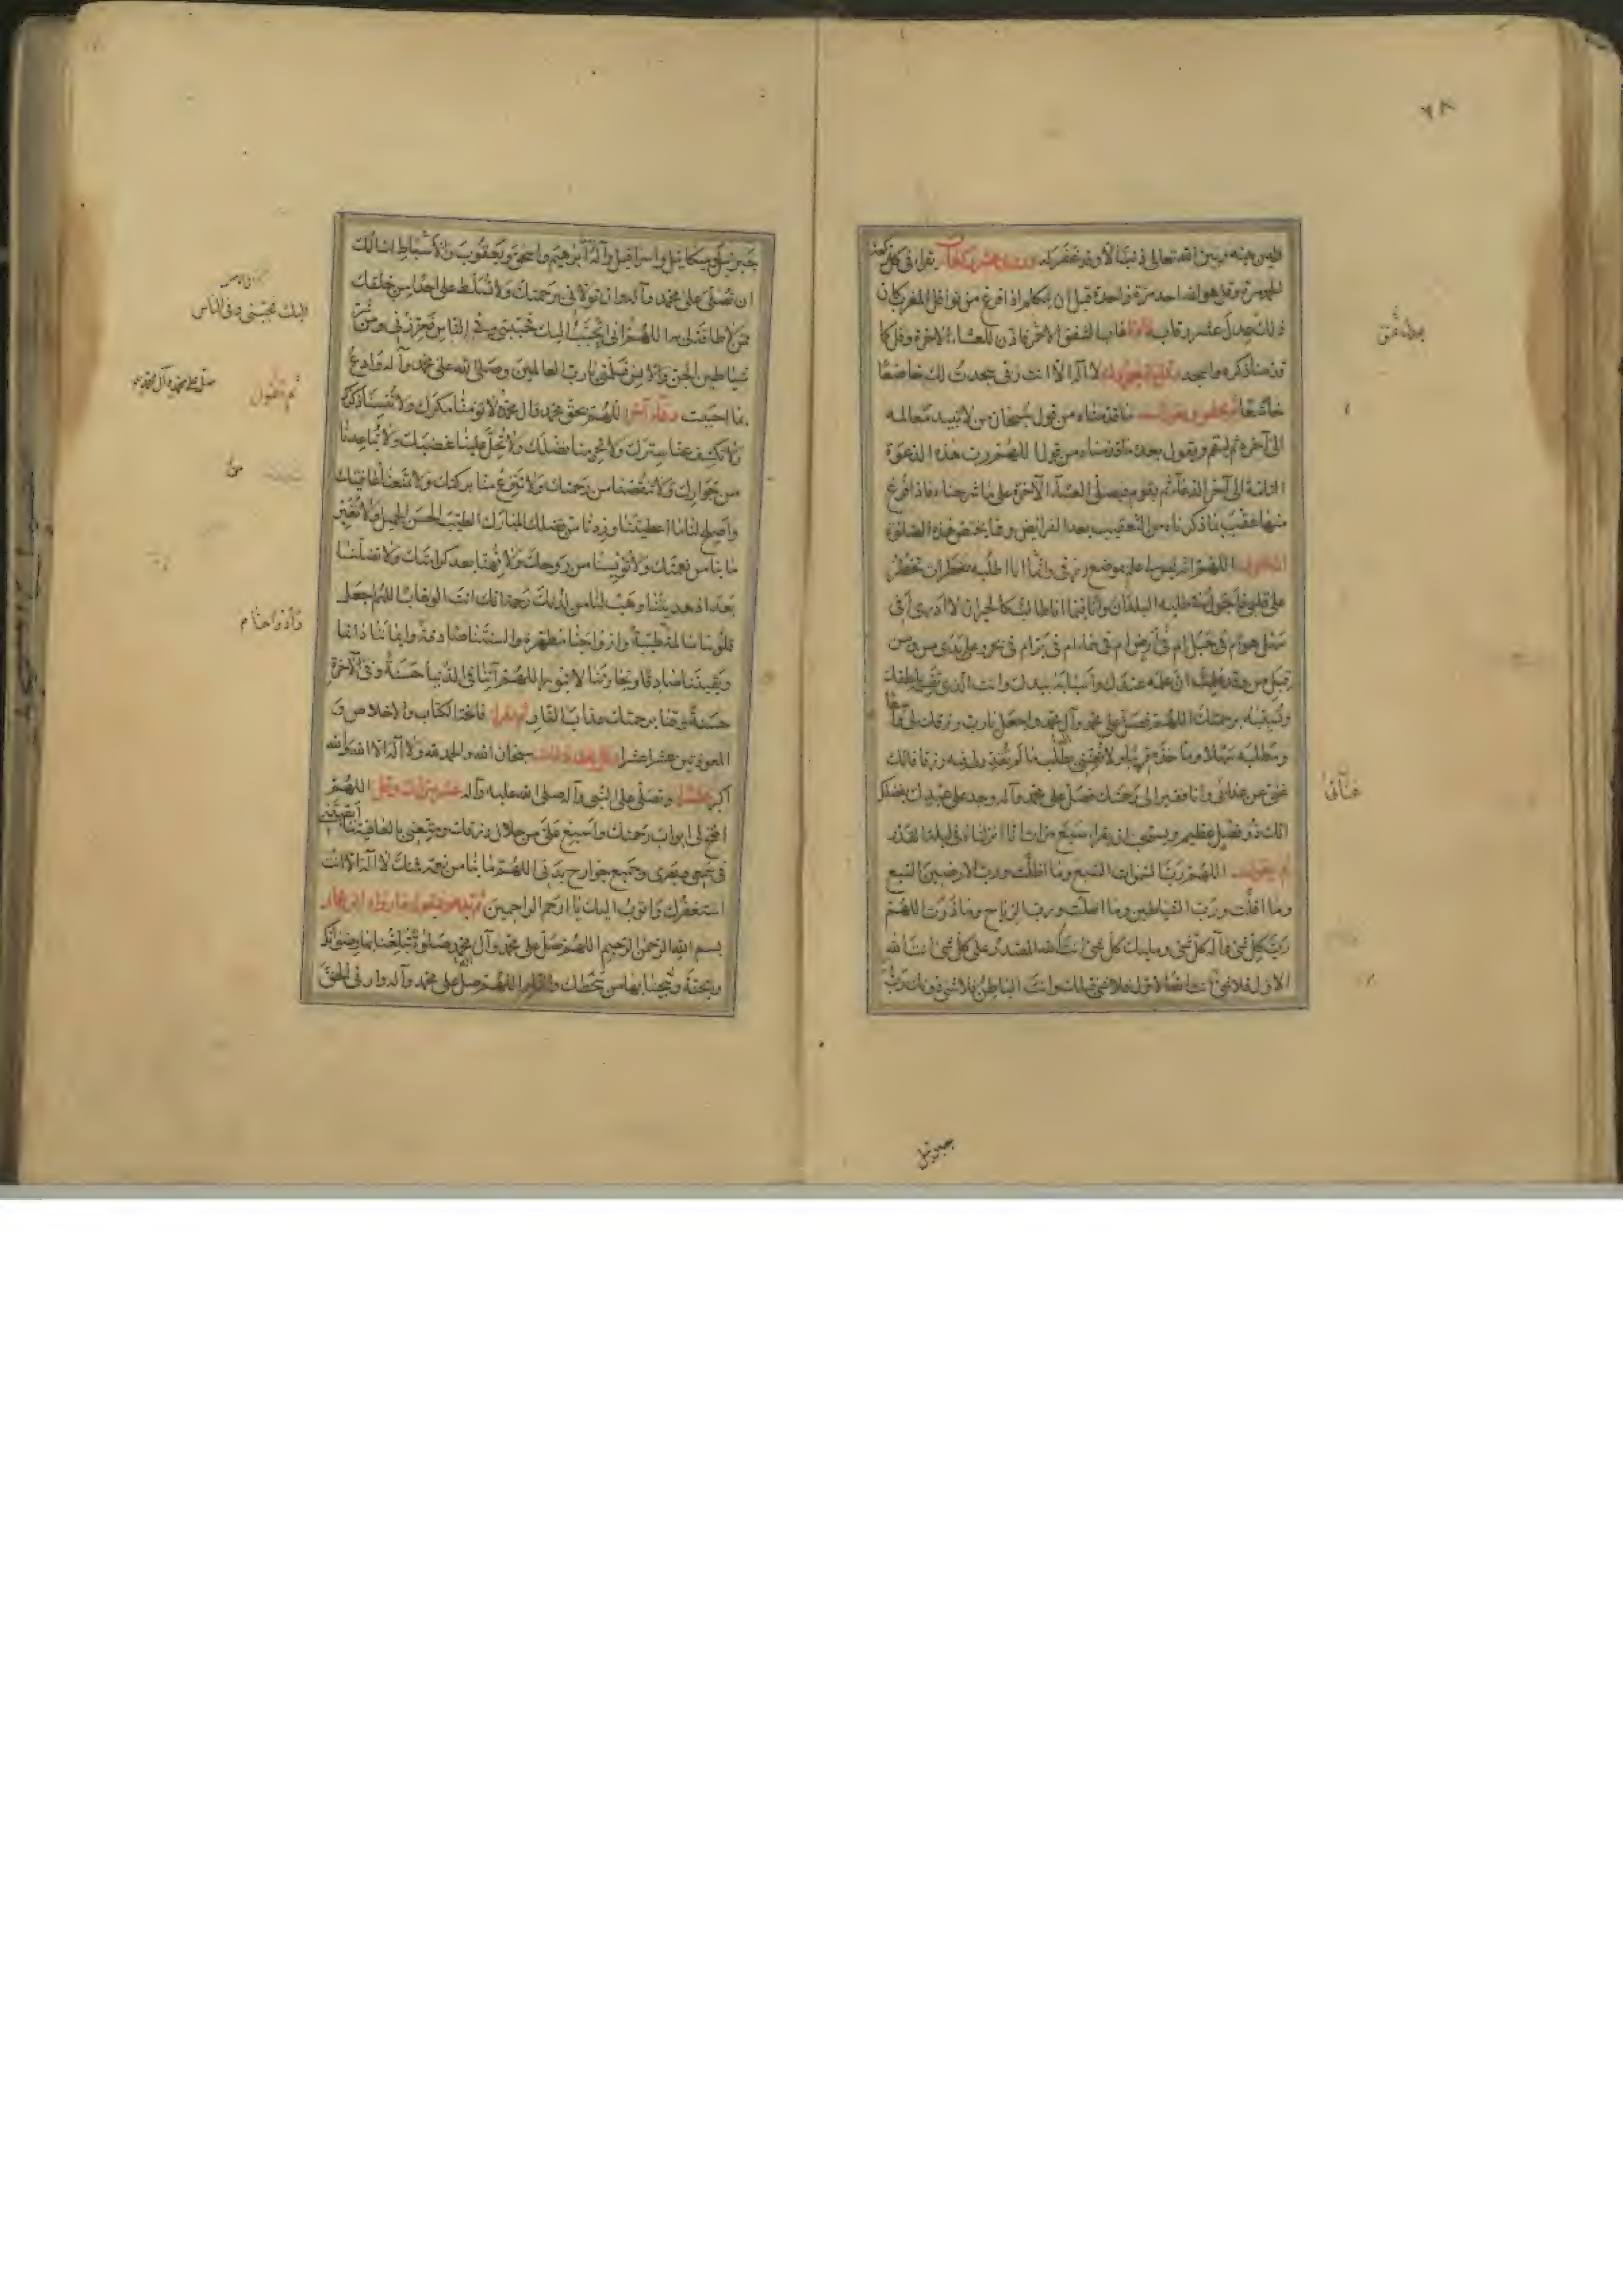 ٦٨
فليس بينه وبين الله تعالى ذنب الا وقد غفر له يقرا في كل ركعة
الحمد مرة وقل هو الله احد مرة واحدة قبل ان يتكلم اذا فرغ من نوافل المغرب كان
ذلك يعدل عشر رقاب فاذا غاب الشفق الاحمر فاذن للعشاء الآخرة وقل ما
قدمنا ذكره واسجد وقل في سجودك لا اله الا انت ربي سجدت لك خاضعا
خاشعا ثم اجلس وقل ما قدمناه من قول سبحان من لا تبيد معالمه
الى آخره ثم ليقم ويقول بعده ما قدمناه من قول اللهم رب هذه الدعوة
التامة الى آخر الدعاء ثم يقوم فيصلي العشاء الآخرة على ما شرحناه فاذا فرغ
منها عقب بما ذكرناه من التعقيب بعد الفرائض ومما يختص هذه الصلوة
ان يقول اللهم انه ليس لي علم بموضع رزقي وانما انا اطلبه بخطرات تخطر
على قلبي فاجول في طلبه البلدان وانا فيما انا طالب كالحيران لا ادري أفي
سهل هو ام في جبل ام في أرض ام في سماء ام في بر ام في بحر وعلى يدي من ومن
قبل من وقد علمت ان علمه عندك وأسبابه بيدك وانت الذي تقسمه بلطفك
وتسببه برحمتك اللهم فصل على محمد وآل محمد واجعل يا رب رزقك لي واسعا
ومطلبه سهلا ومأخذه قريبا ولا تعنني بطلب ما لم تقدر لي فيه رزقا فانك
غني عن عذابي وانا فقير الى رحمتك فصل على محمد وآله وجد على عبدك بفضلك
انك ذو فضل عظيم ويستحب ان يقرا سبع مرات انا انزلناه في ليلة القدر
ثم يقول اللهم رب السموات السبع وما اظلت ورب الارضين السبع
وما اقلت ورب الشياطين وما اضلت ورب الرياح وما ذرت اللهم
رب كل شئ واله كل شئ ومليك كل شئ انت الله المقتدر على كل شئ انت الله
الاول فلا شئ قبلك وانت الباطن فلا شئ دونك رب
عنائي
جبرئيل
جبرئيل وميكائيل واسرافيل وآله ابراهيم واسحق ويعقوب والاسباط اسالك
ان تصلي على محمد وآله وان تولاني برحمتك ولا تسلط علي احدا من خلقك
ممن لا طاقة لي به اللهم اني اتحبب اليك فحببني وفي الناس فعززني ومن شر
شياطين الجن والانس فسلمني يا رب العالمين وصلى الله على محمد وآله وادع
بما احببت دعاء آخر اللهم بحق محمد وآل محمد لا تؤمنا مكرك ولا تنسنا ذكرك
ولا تكشف عنا سترك ولا تحرمنا فضلك ولا تحل علينا غضبك ولا تباعدنا
من جوارك ولا تنقصنا من رحمتك ولا تنزع منا بركتك ولا تمنعنا عافيتك
واصلح لنا ما اعطيتنا وزدنا من فضلك المبارك الطيب الحسن الجميل ولا تغير
ما بنا من نعمتك ولا تؤيسنا من روحك ولا تهنا بعد كرامتك ولا تضلنا
بعد اذ هديتنا وهب لنا من لدنك رحمة انك انت الوهاب اللهم اجعل
قلوبنا سالمة وارواحنا طيبة وازواجنا مطهرة والسنتنا صادقة وايماننا دائما
ويقيننا صادقا وتجارتنا لا تبور اللهم آتنا في الدنيا حسنة وفي الآخرة
حسنة وقنا برحمتك عذاب النار ثم تقرا فاتحة الكتاب والاخلاص و
المعوذتين عشرا عشرا سبحان الله والحمد لله ولا اله الا الله والله
اكبر عشرا وتصلي على النبي وآله صلى الله عليه وآله عشر مرات وقل اللهم
افتح لي ابواب رحمتك واسبغ علي من حلال رزقك ومتعني بالعافية ما ابقيتني
في سمعي وبصري وجميع جوارح بدني اللهم ما بنا من نعمة فمنك لا اله الا انت
استغفرك واتوب اليك يا ارحم الراحمين
بسم الله الرحمن الرحيم اللهم صل على محمد وآل محمد صلوة تبلغنا بها رضوانك
والجنة وتنجينا بها من سخطك والنار اللهم صل على محمد وآله وارني الحق
اليك فحببني وفي الناس
ثم تقول
صل على محمد وآل محمد
من